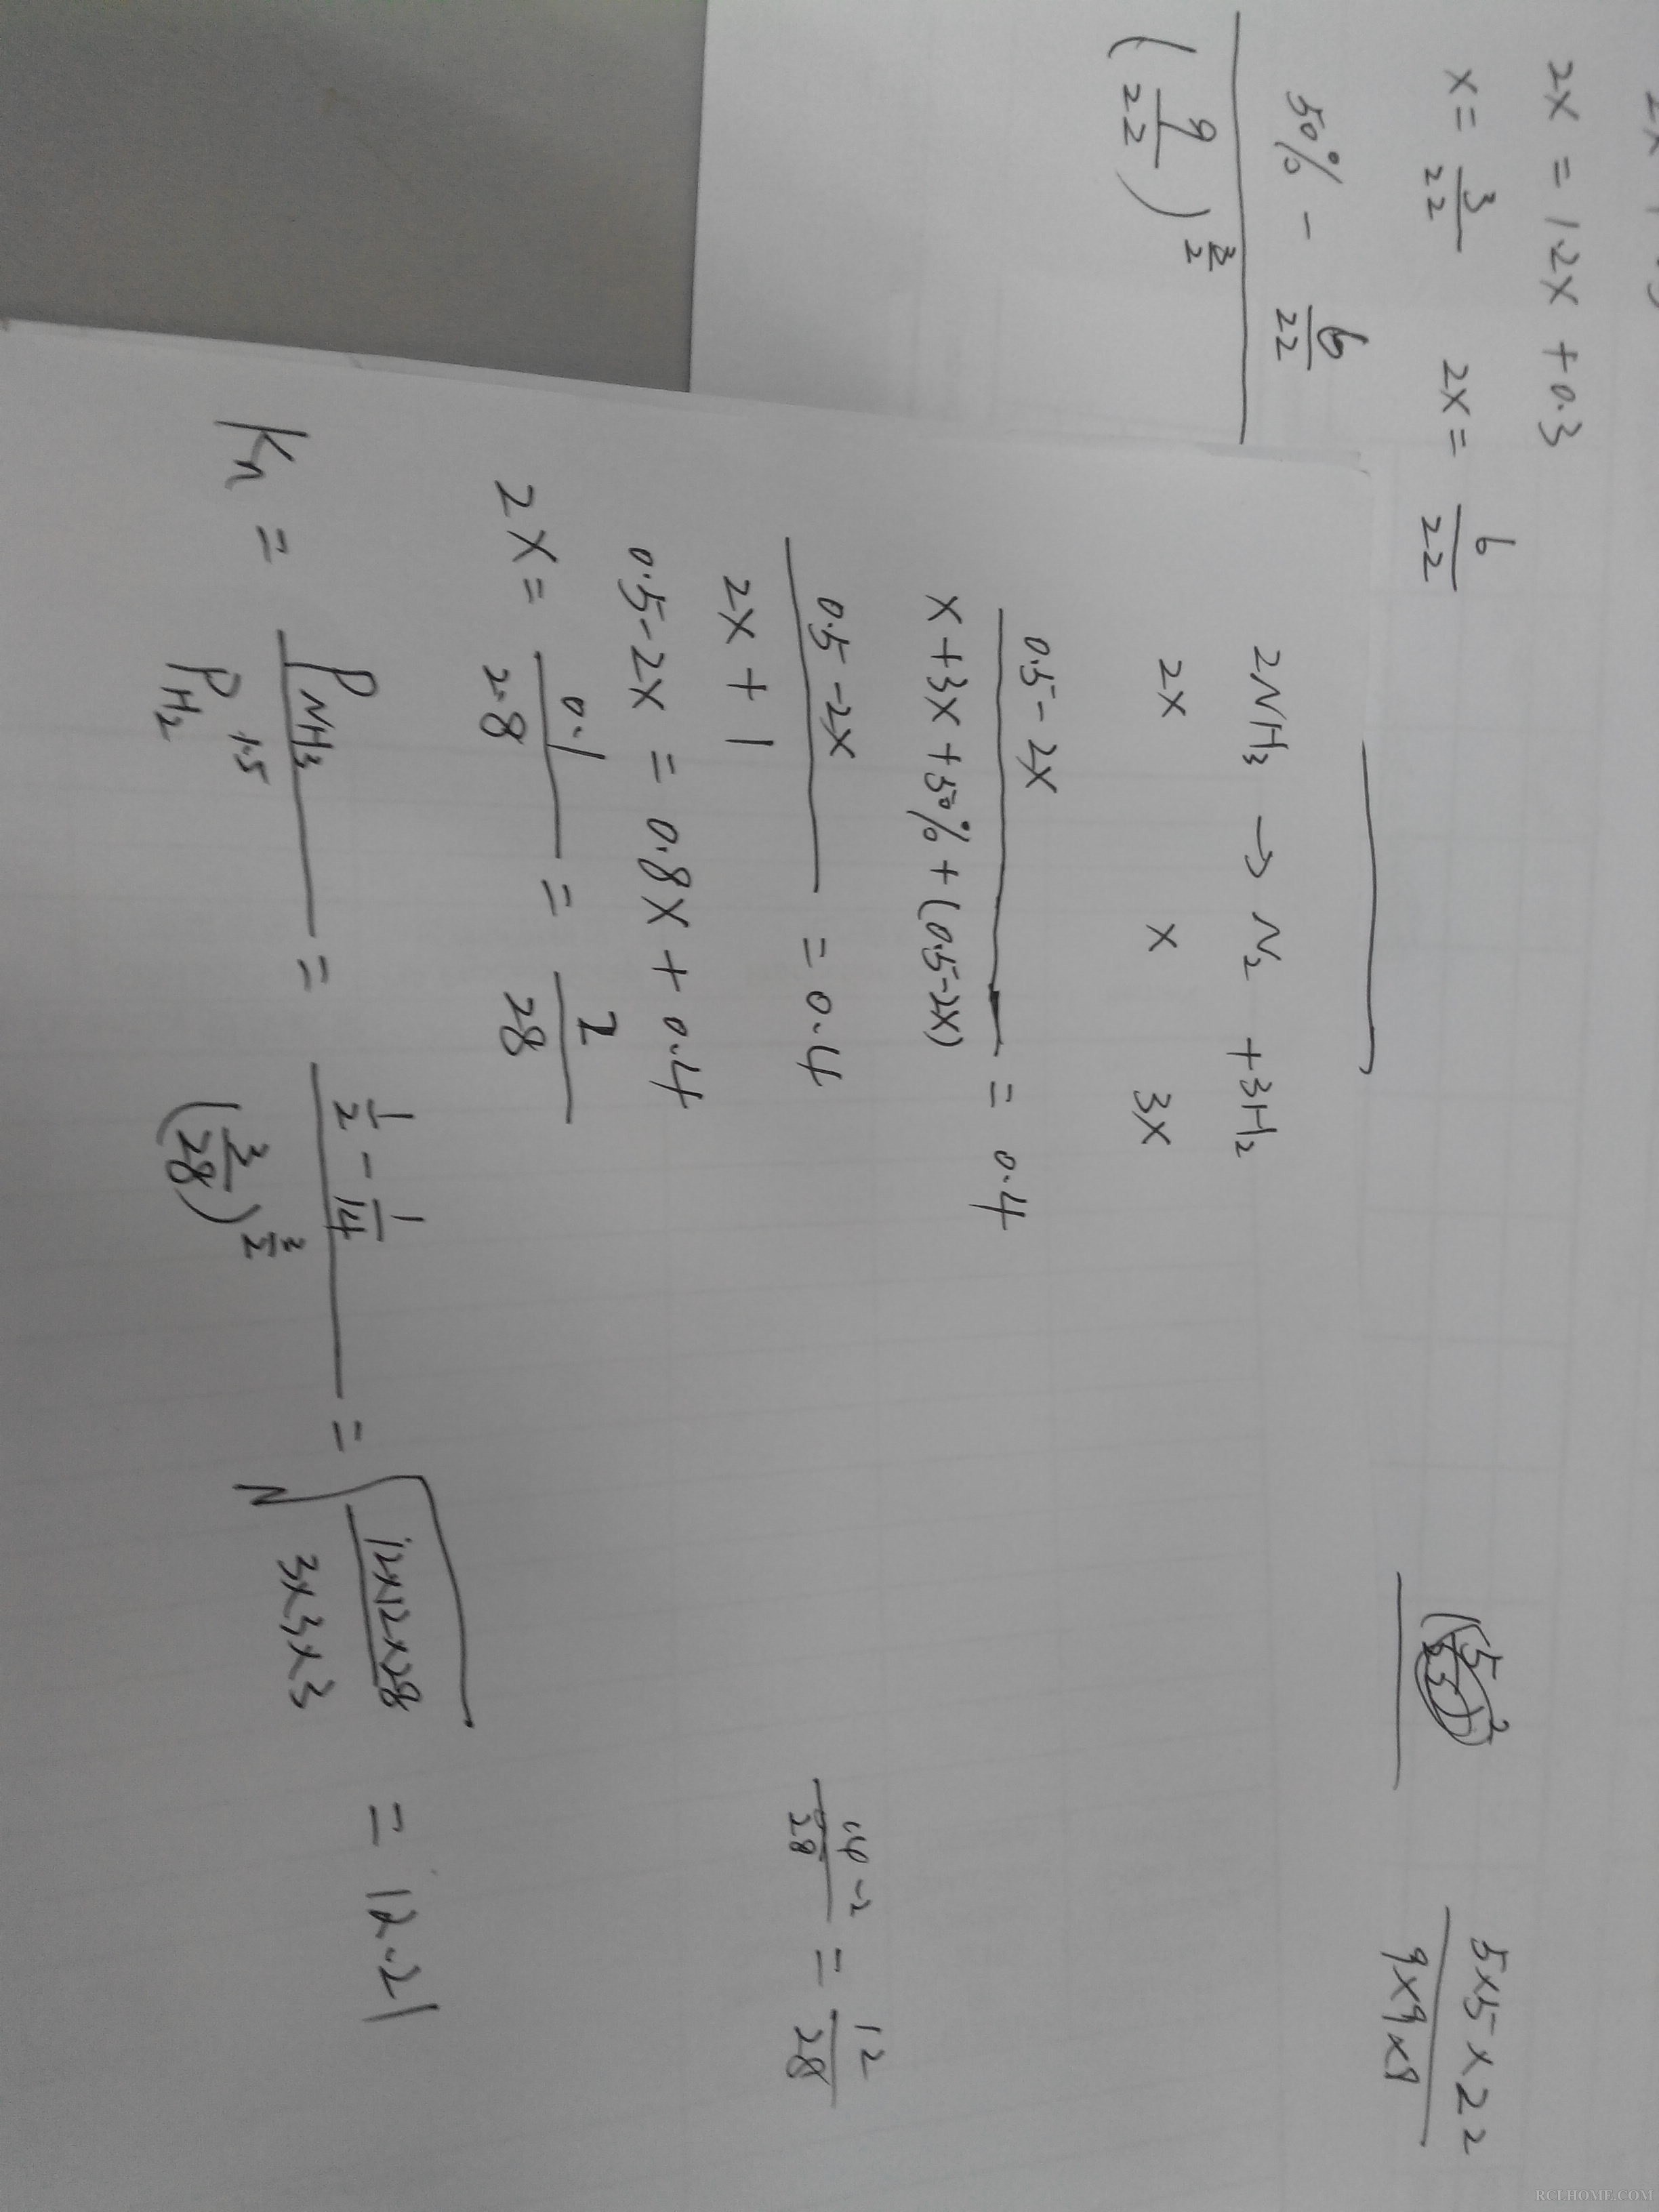 2x = 1.2x + 0.3
x = 3/22 2x = 6/22
50% - 6/22
(9/22)^(3/2)
5x5x22
9x9x9
2NH₃ → N₂ + 3H₂
2x x 3x
0.5-2x
x+3x+50%+(0.5-2x) = 0.4
0.5-2x
2x+1 = 0.4
14-2/28 = 12/28
0.5-2x = 0.8x + 0.4
2x = 0.1/2.8 = 1/28
Kn = P NH₃ / P H₂ ^1.5 = (1/2 - 1/14) / (3/28)^(3/2) = √(12x12x28 / 3x3x3) = 12.21
RCLHOME.COM